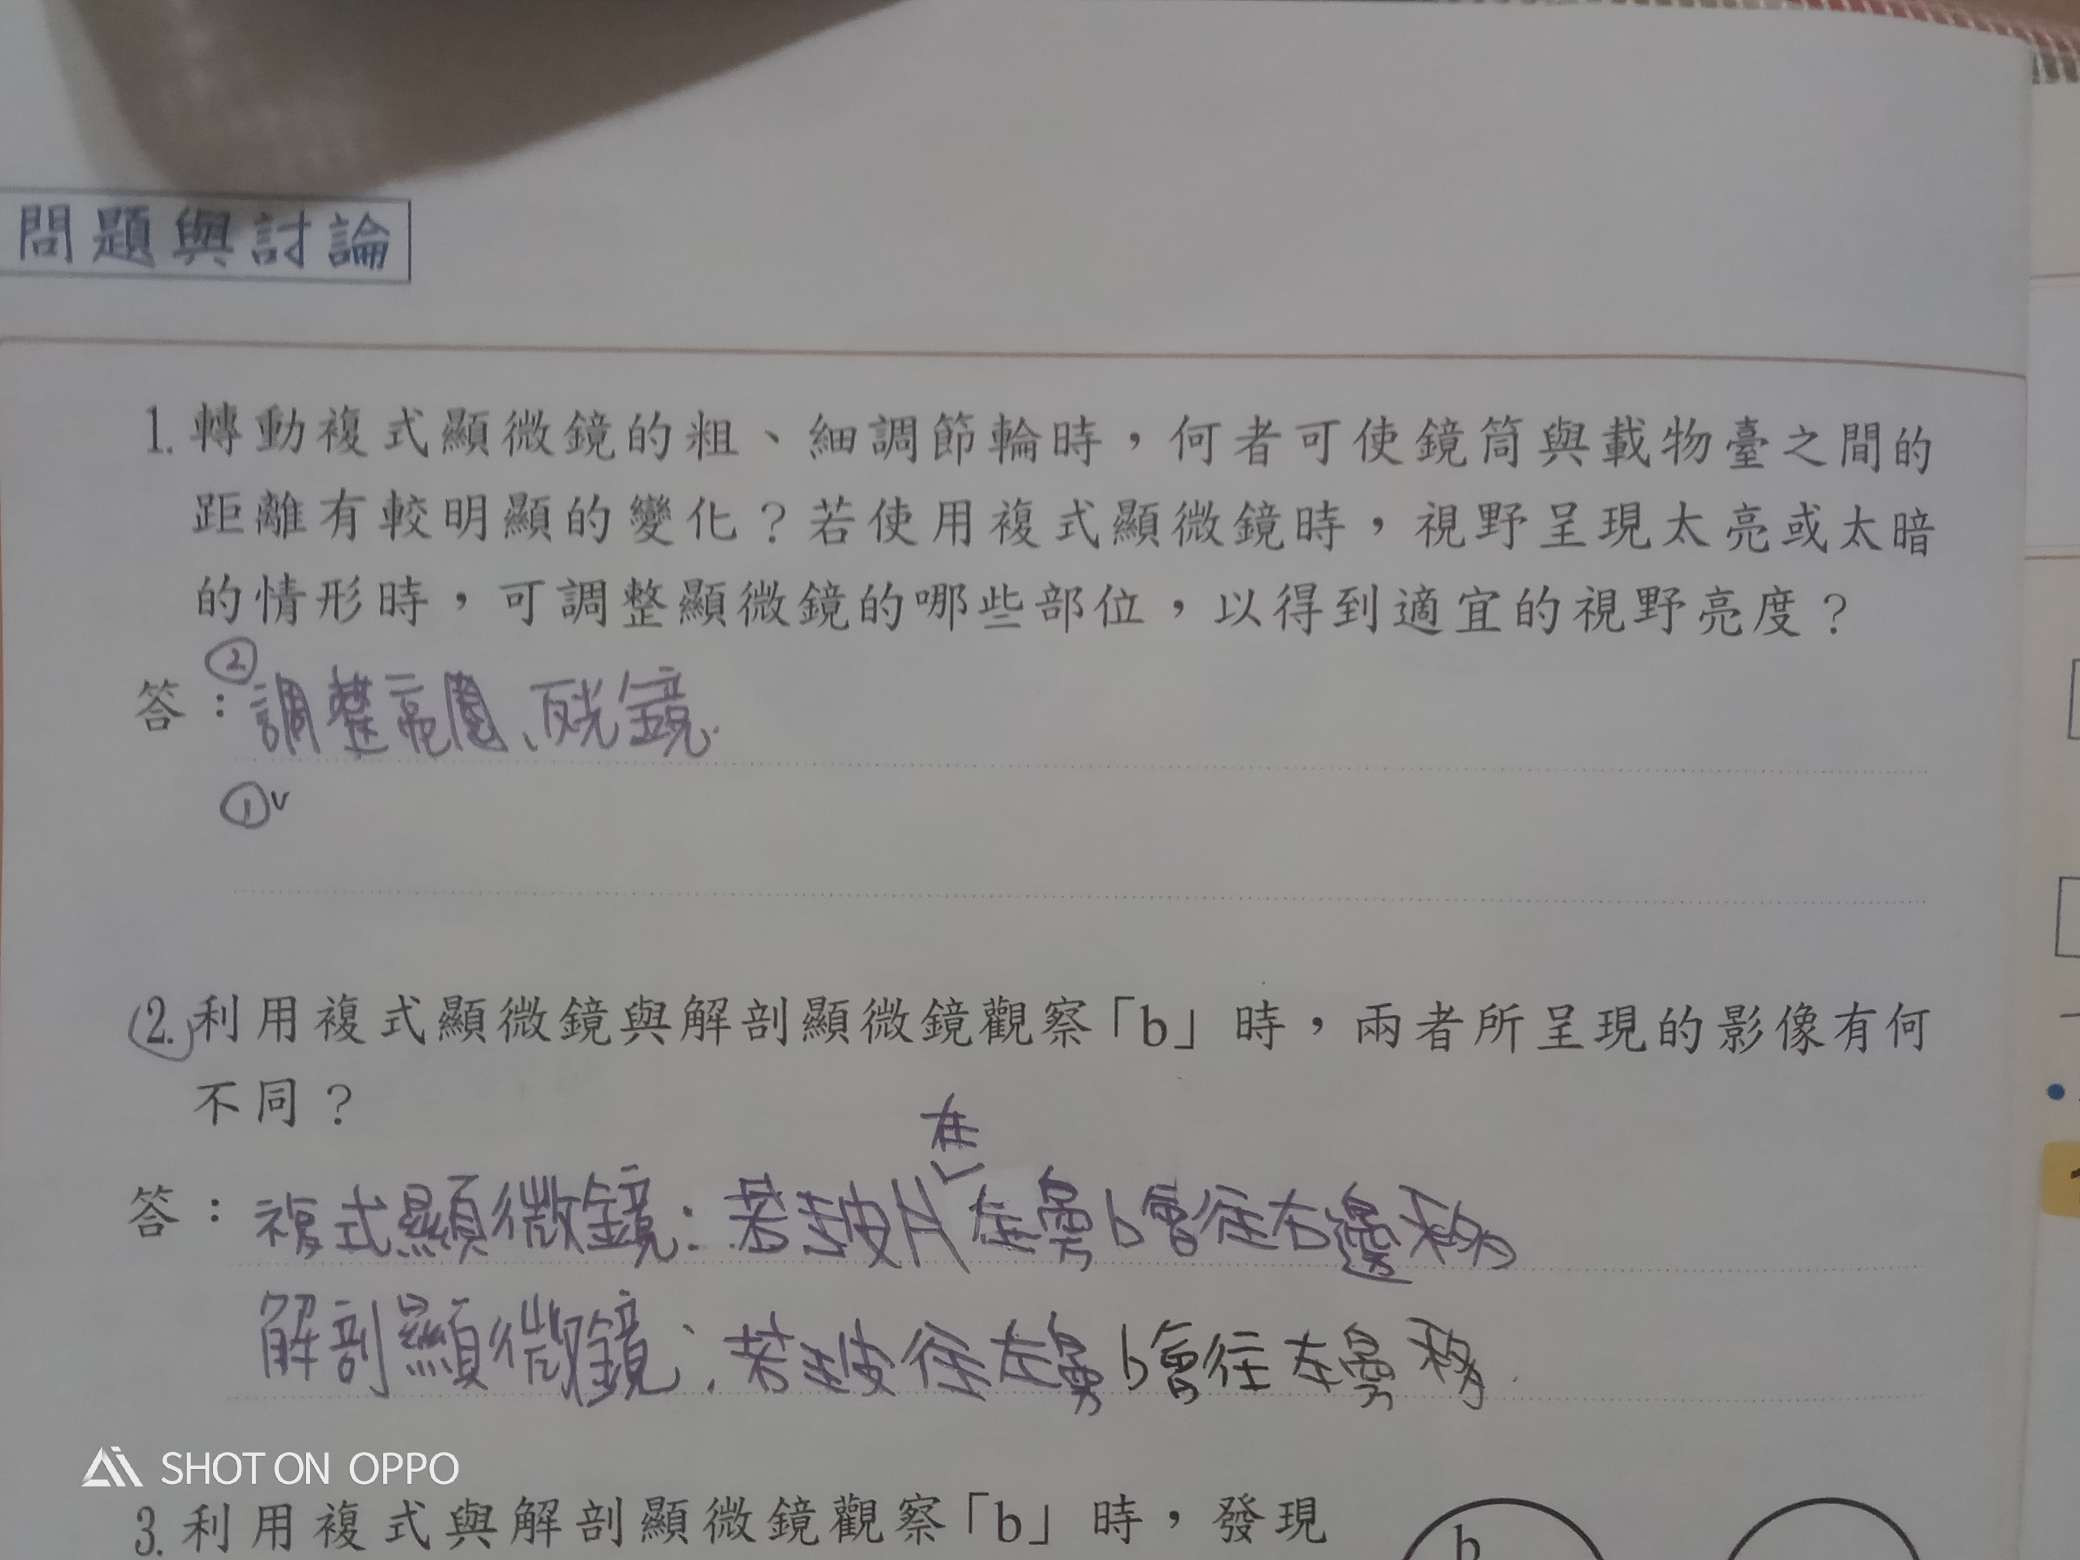 問題與討論
1. 轉動複式顯微鏡的粗、細調節輪時，何者可使鏡筒與載物臺之間的
距離有較明顯的變化？若使用複式顯微鏡時，視野呈現太亮或太暗
的情形時，可調整顯微鏡的哪些部位，以得到適宜的視野亮度？
②
答：調整 、反光鏡.
①v
2. 利用複式顯微鏡與解剖顯微鏡觀察「b」時，兩者所呈現的影像有何
不同？
在
答：複式顯微鏡：若玻片左旁b會往右邊移
解剖顯微鏡：若玻往左旁b會往左旁移.
SHOT ON OPPO
3. 利用複式與解剖顯微鏡觀察「b」時，發現
b